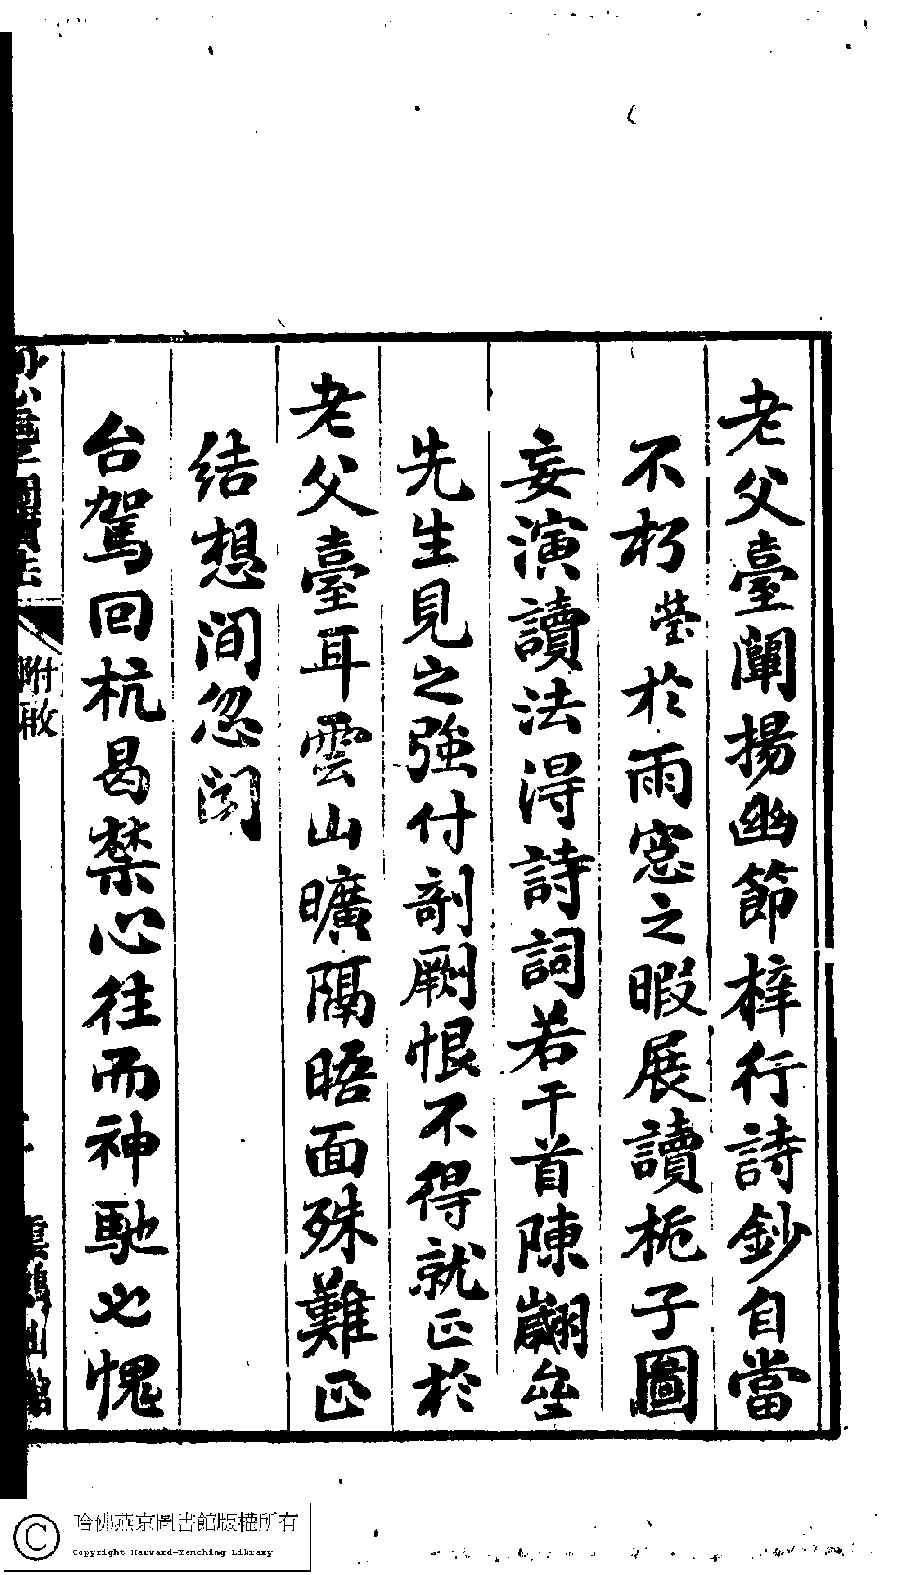 老父臺闡揚幽節梓行詩鈔自當
不朽瑩於雨窓之暇展讀梔子圖
妄演讀法得詩詞若干首陳翽壘
先生見之強付剞劂恨不得就正於
老父臺耳雲山曠隔晤面殊難正
結想間忽聞
台駕回杭曷禁心往而神馳也愧
圖讀法
附啟
哈佛燕京圖書館版權所有
Copyright Harvard-Yenching Library